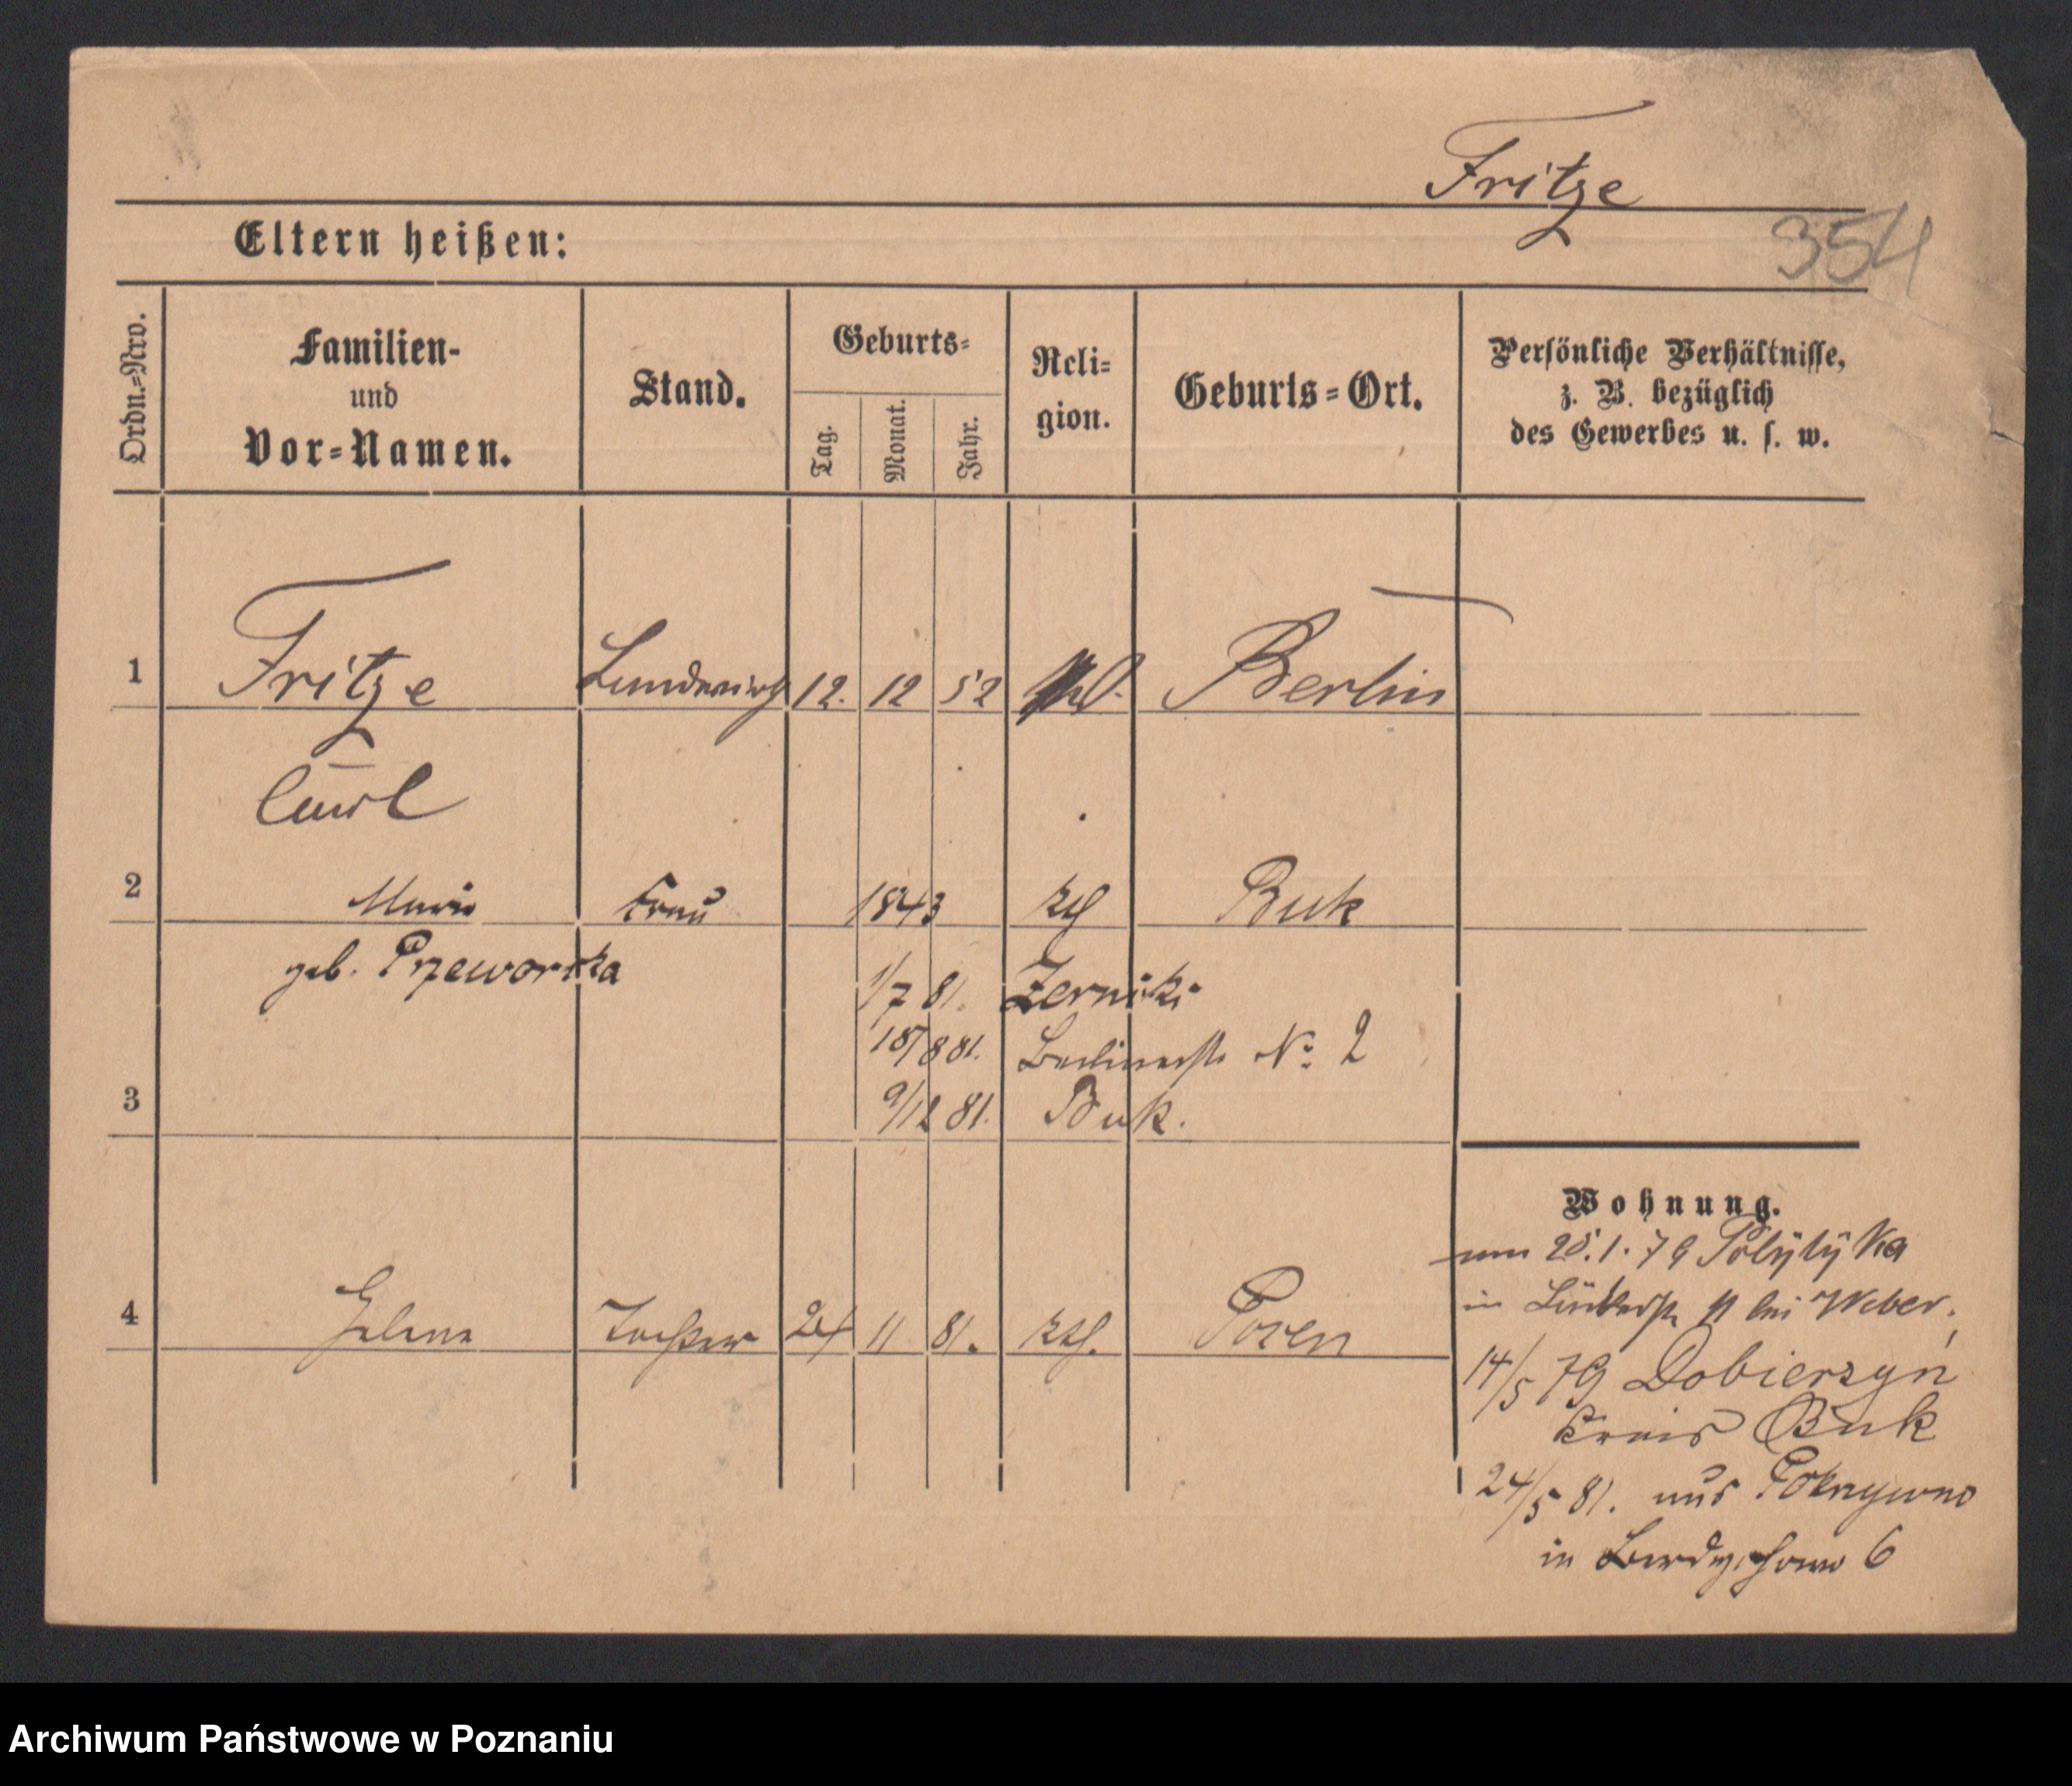 Fritze
354
Eltern heißen:
Ordn.=Nro.
Familien-
und
Vor=Namen.
Stand.
Geburts=
Tag.
Monat.
Jahr.
Reli=
gion.
Geburts=Ort.
Persönliche Verhältnisse,
z. B. bezüglich
des Gewerbes u. s. w.
1 Fritze Landwirth 12. 12 52 Berlin
Carl
2 Marie Frau 1843 kth Buk
geb. Przeworska
1/7 81. Zerniki
18/8 81. Berlinerstr No 2
3 9/12 81. Buk.
Wohnung.
25.1.79
in 11 bei Weber.
4 Helena Tochter 24 11 81. kth. Posen
14/5 79 Dobierzyn
Kreis Buk
24/5 81. aus Pokrzywno
in Berdychowo 6
Archiwum Państwowe w Poznaniu